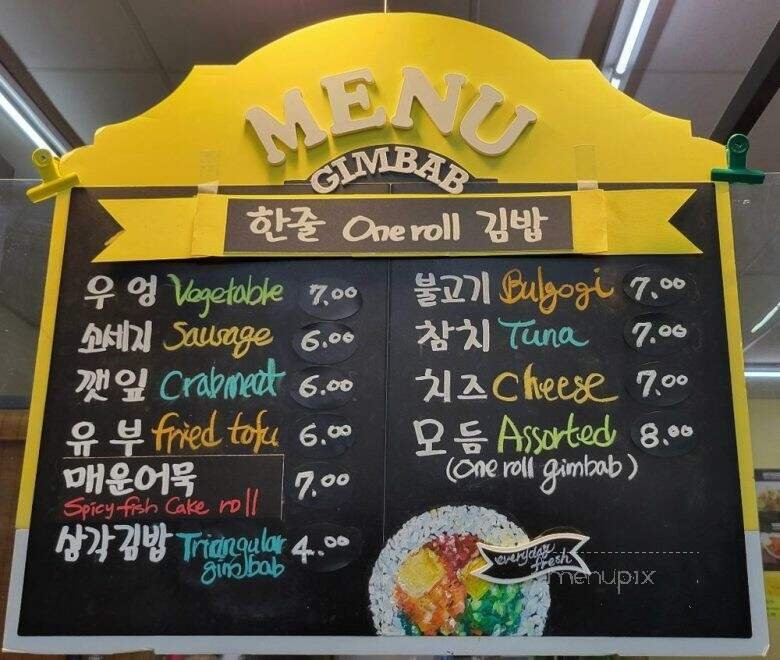 MENU
GIMBAB
한줄 One roll 김밥
우엉 Vegetable 7.00
소세지 Sausage 6.00
깻잎 Crabmeat 6.00
유부 fried tofu 6.00
매운어묵 7.00
Spicy fish cake roll
삼각김밥 Triangular 4.00
gimbab
불고기 Bulgogi 7.00
참치 Tuna 7.00
치즈 Cheese 7.00
모듬 Assorted 8.00
(One roll gimbab)
everyday
fresh
menupix